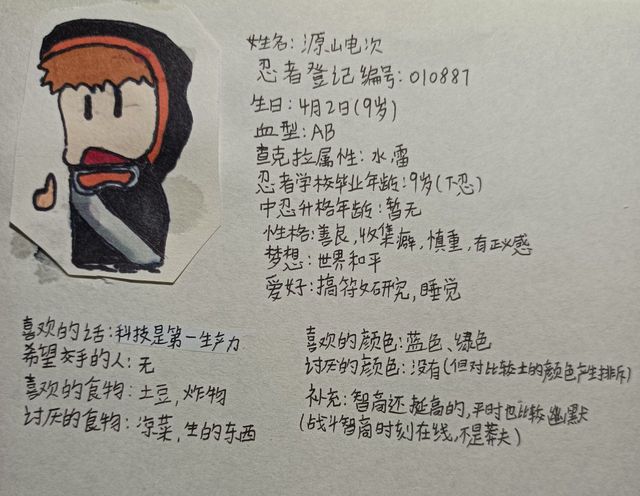 姓名：源山电次
忍者登记编号：010887
生日：4月2日（9岁）
血型：AB
查克拉属性：水，雷
忍者学校毕业年龄：9岁（下忍）
中忍升格年龄：暂无
性格：善良，收集癖，慎重，有正义感
梦想：世界和平
爱好：搞符文研究，睡觉
喜欢的话：科技是第一生产力
希望交手的人：无
喜欢的食物：土豆，炸物
讨厌的食物：凉菜，生的东西
喜欢的颜色：蓝色、绿色
讨厌的颜色：没有（但对比较土的颜色产生排斥）
补充：智商还挺高的，平时也比较幽默
（战斗智商时刻在线，不是莽夫）